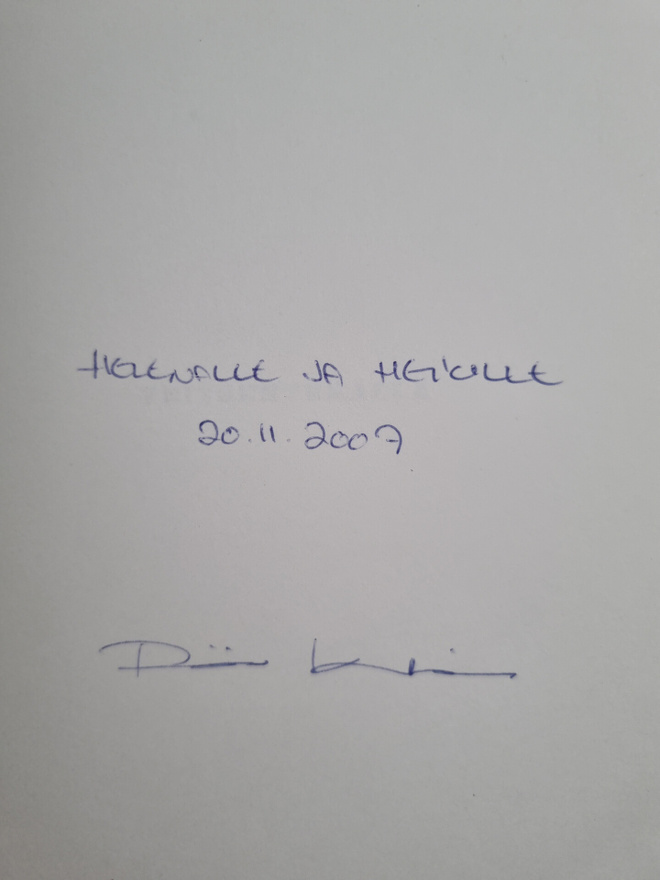 HELENALLE JA HEIKILLE
20.11.2007